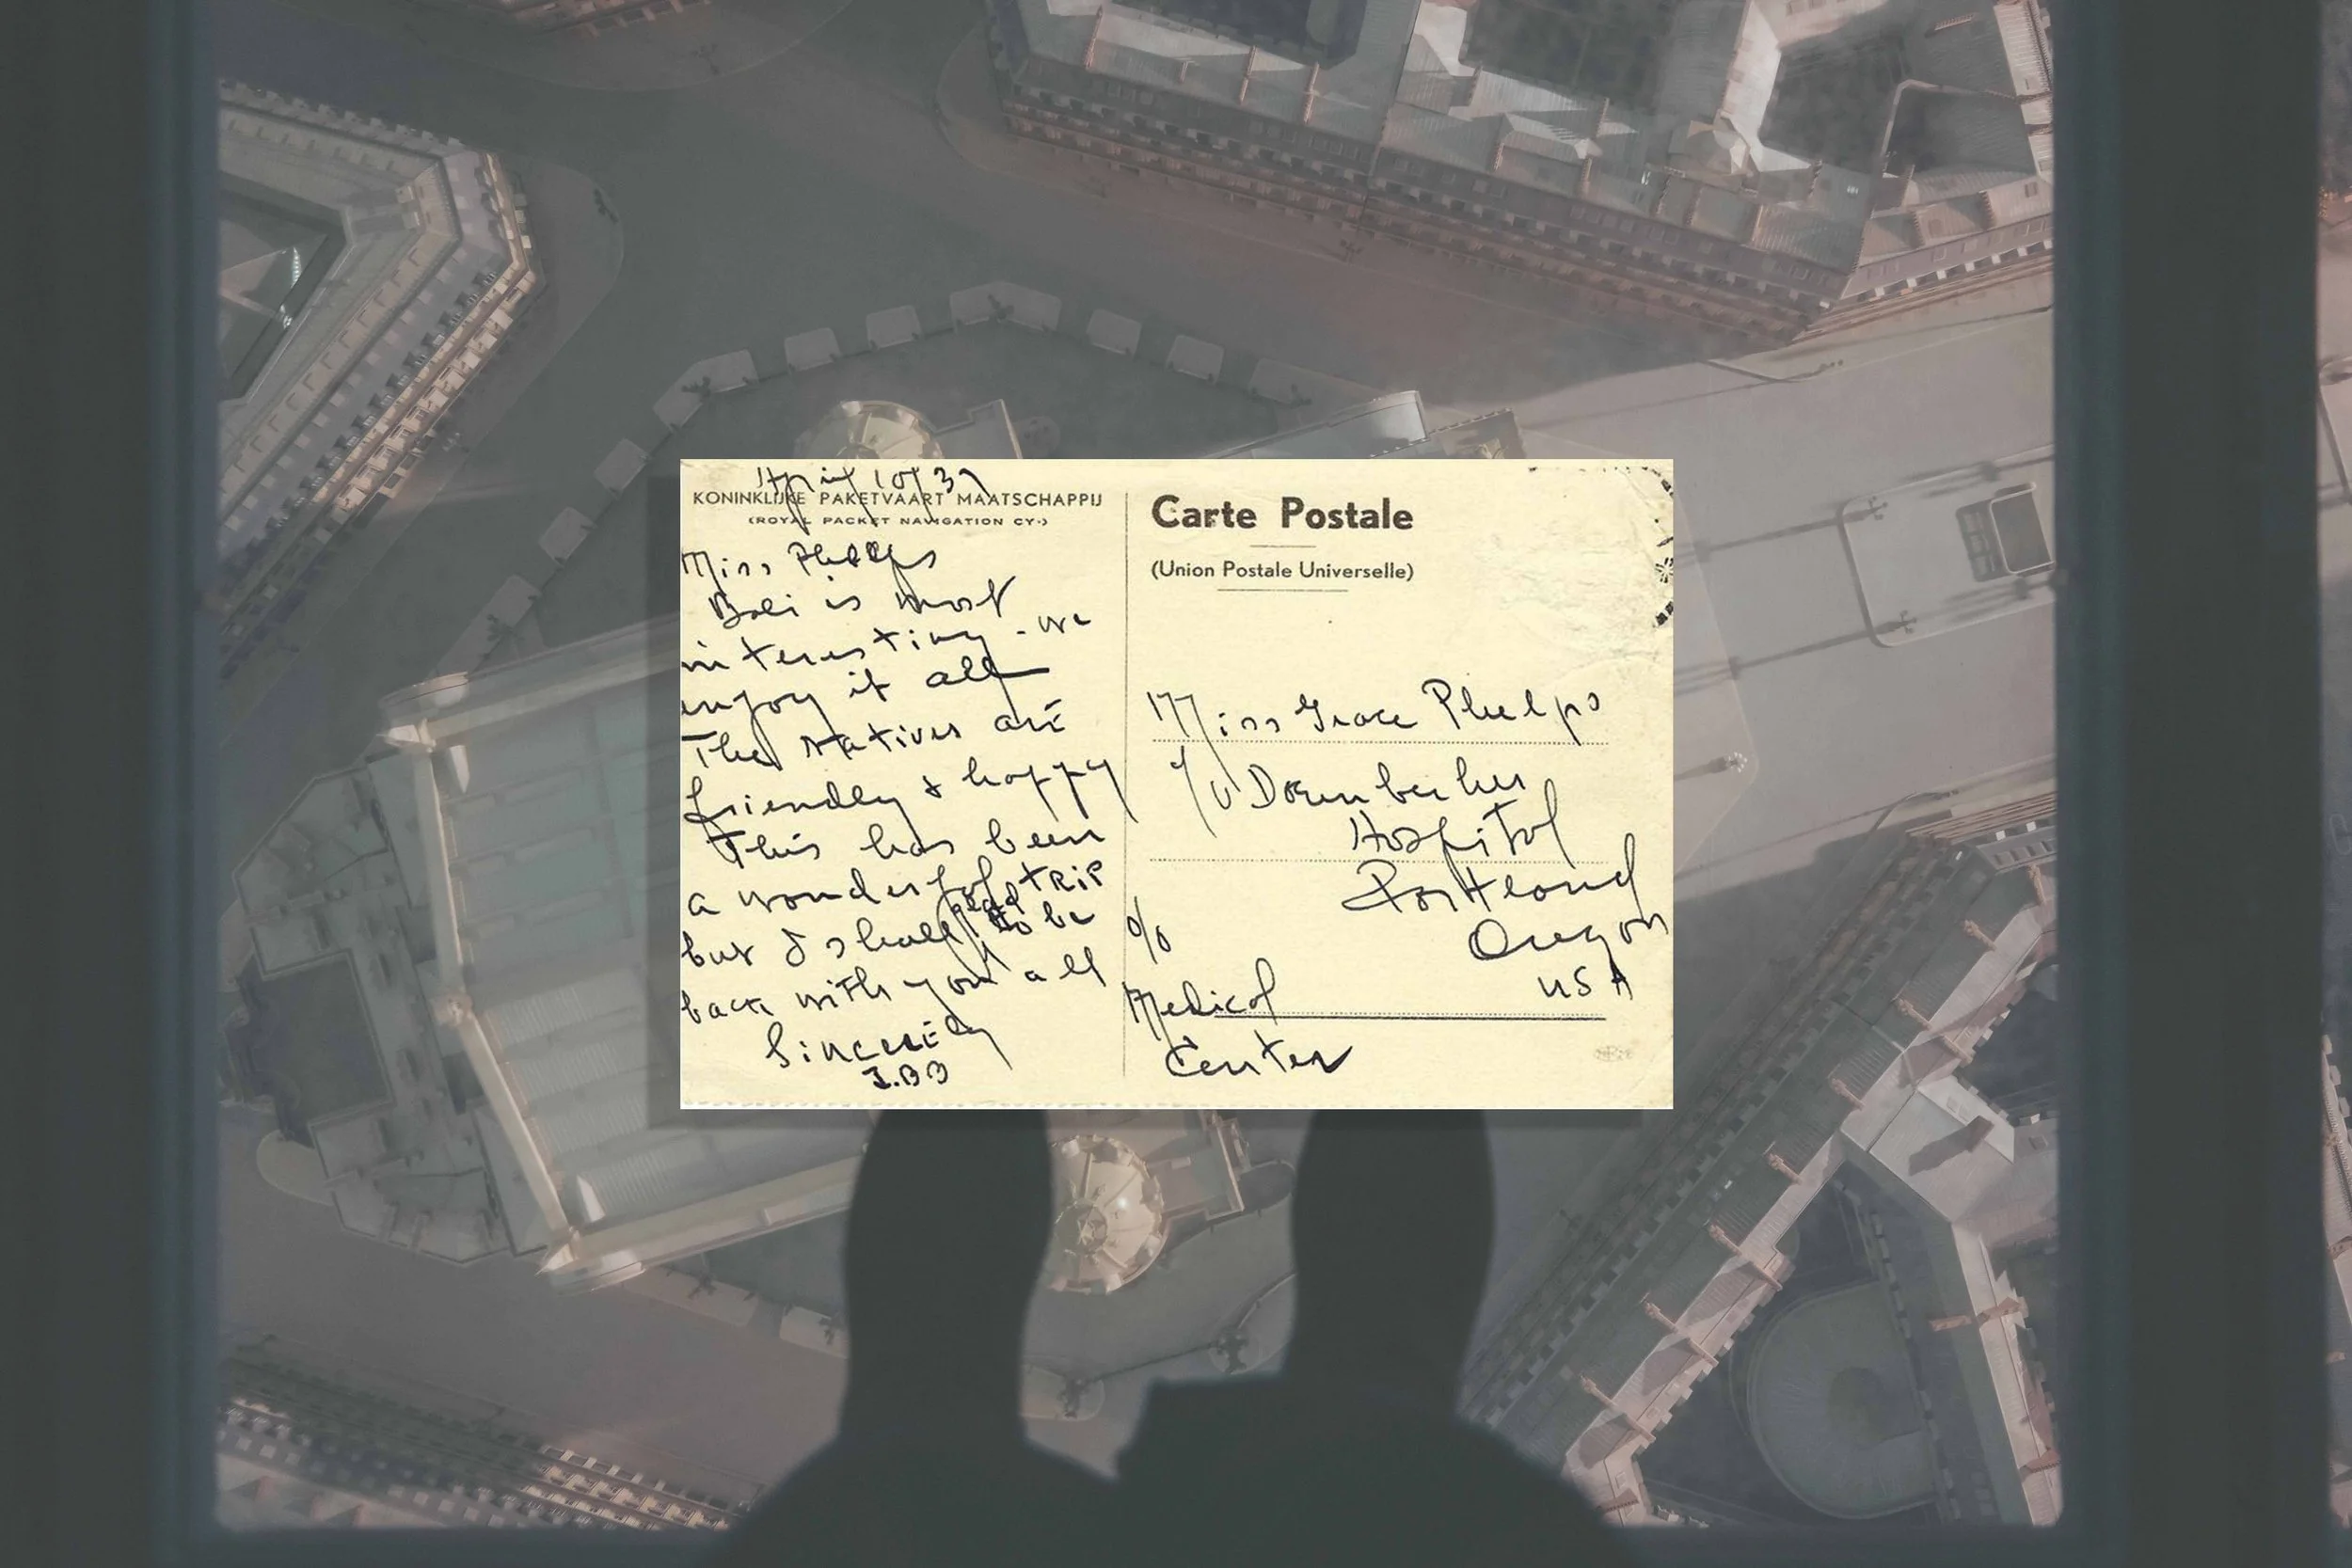 April 10/37
KONINKLIJKE PAKETVAART MAATSCHAPPIJ
(ROYAL PACKET NAVIGATION CY.)
Miss Phelps
Bali is most
interesting - we
enjoy it all
The Natives are
friendly & happy
This has been
a wonderful trip
but I shall be glad to be
back with you all
Sincerely
J.BB
Carte Postale
(Union Postale Universelle)
Miss Grace Phelps
c/o Doernbecher
Hospital
Portland
Oregon
USA
c/o
Medical
Center